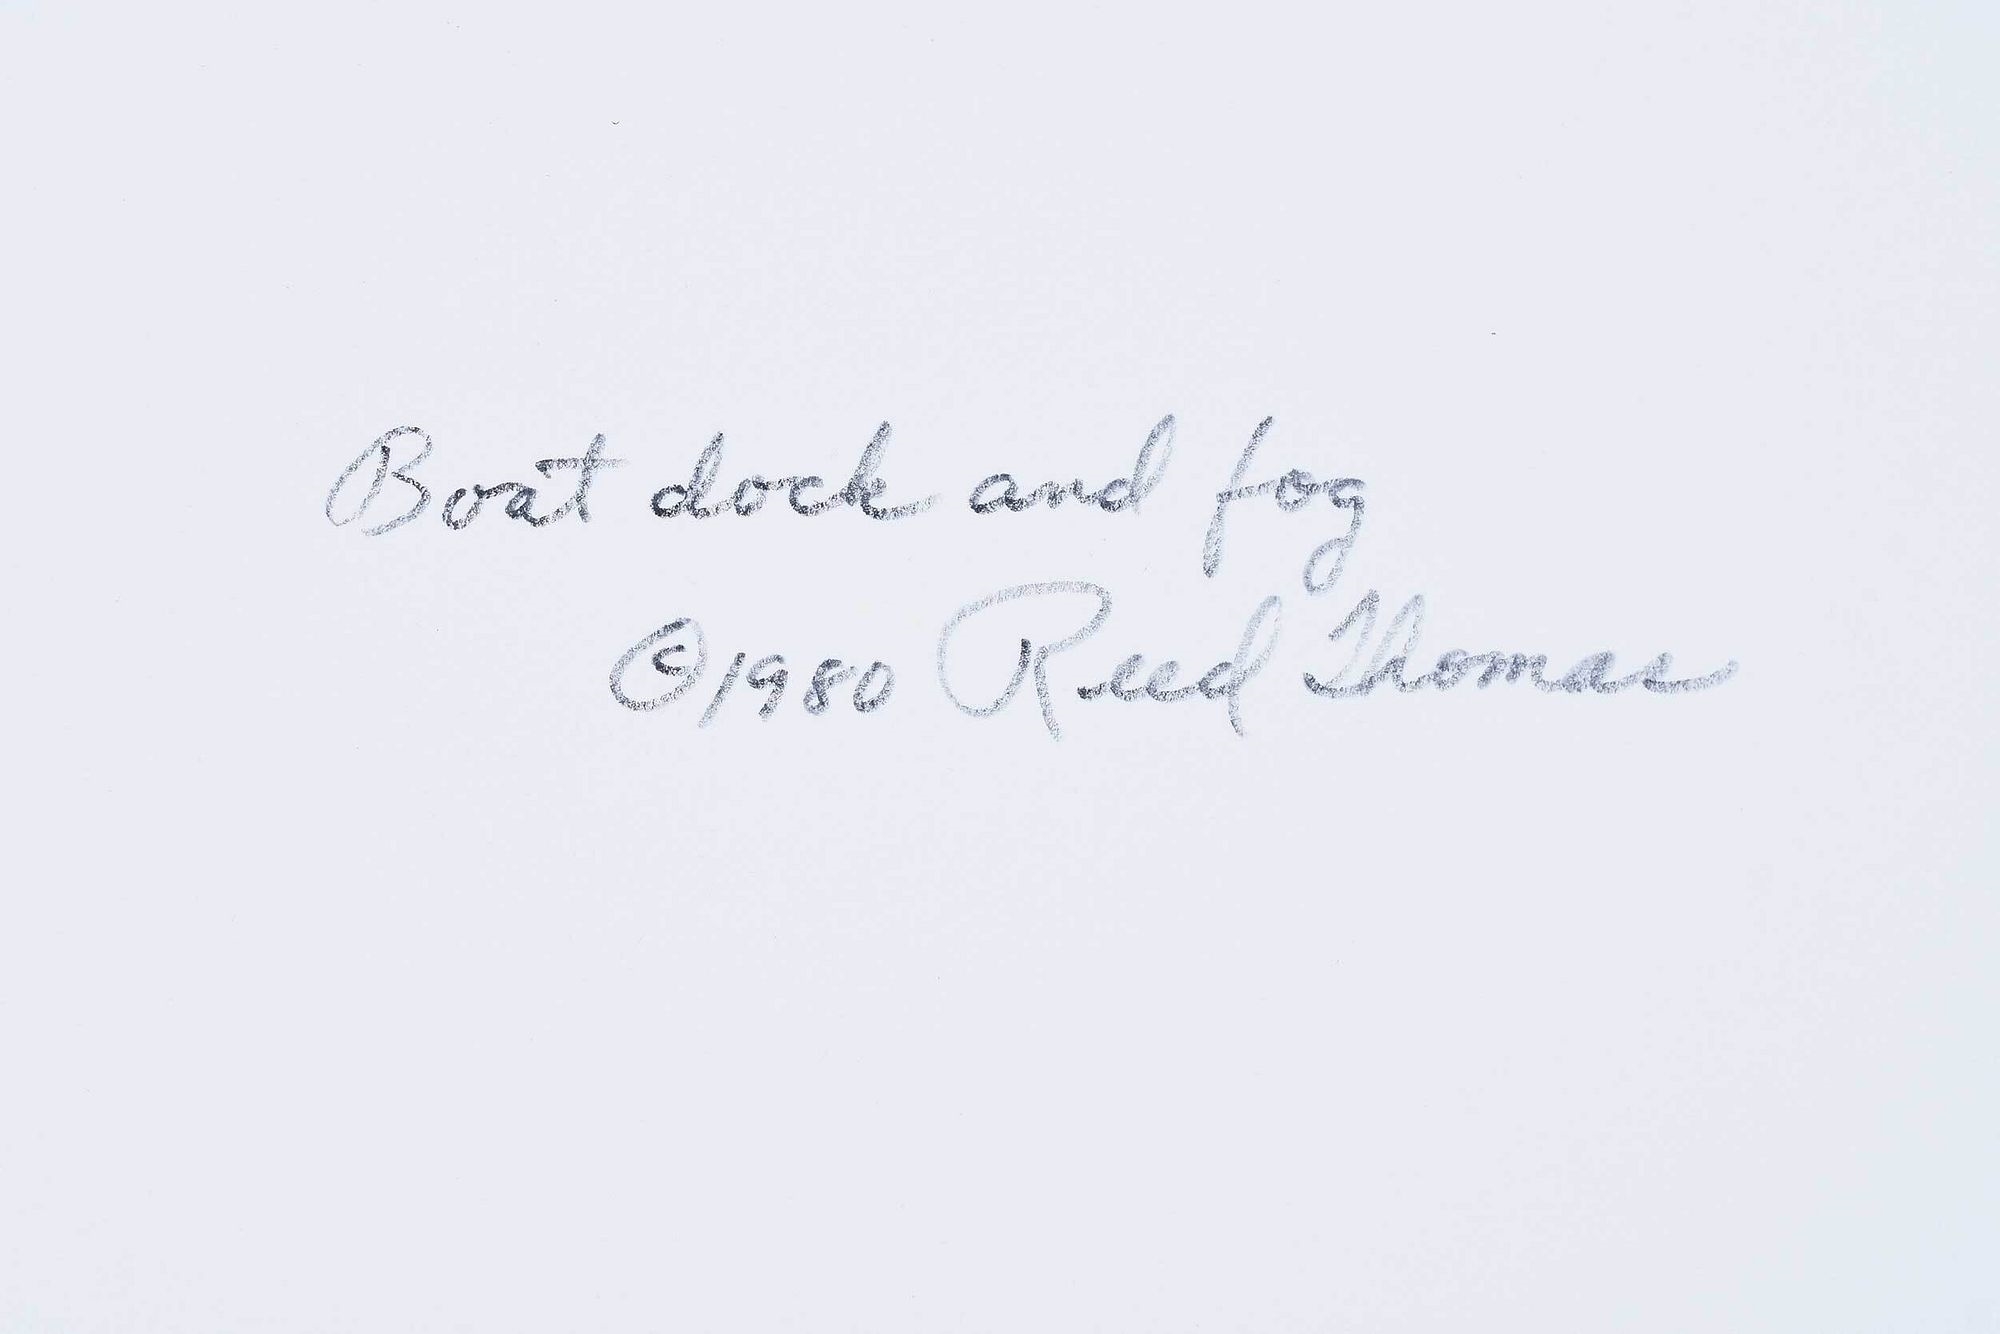 Boat dock and fog
©1980 Reed Thomas